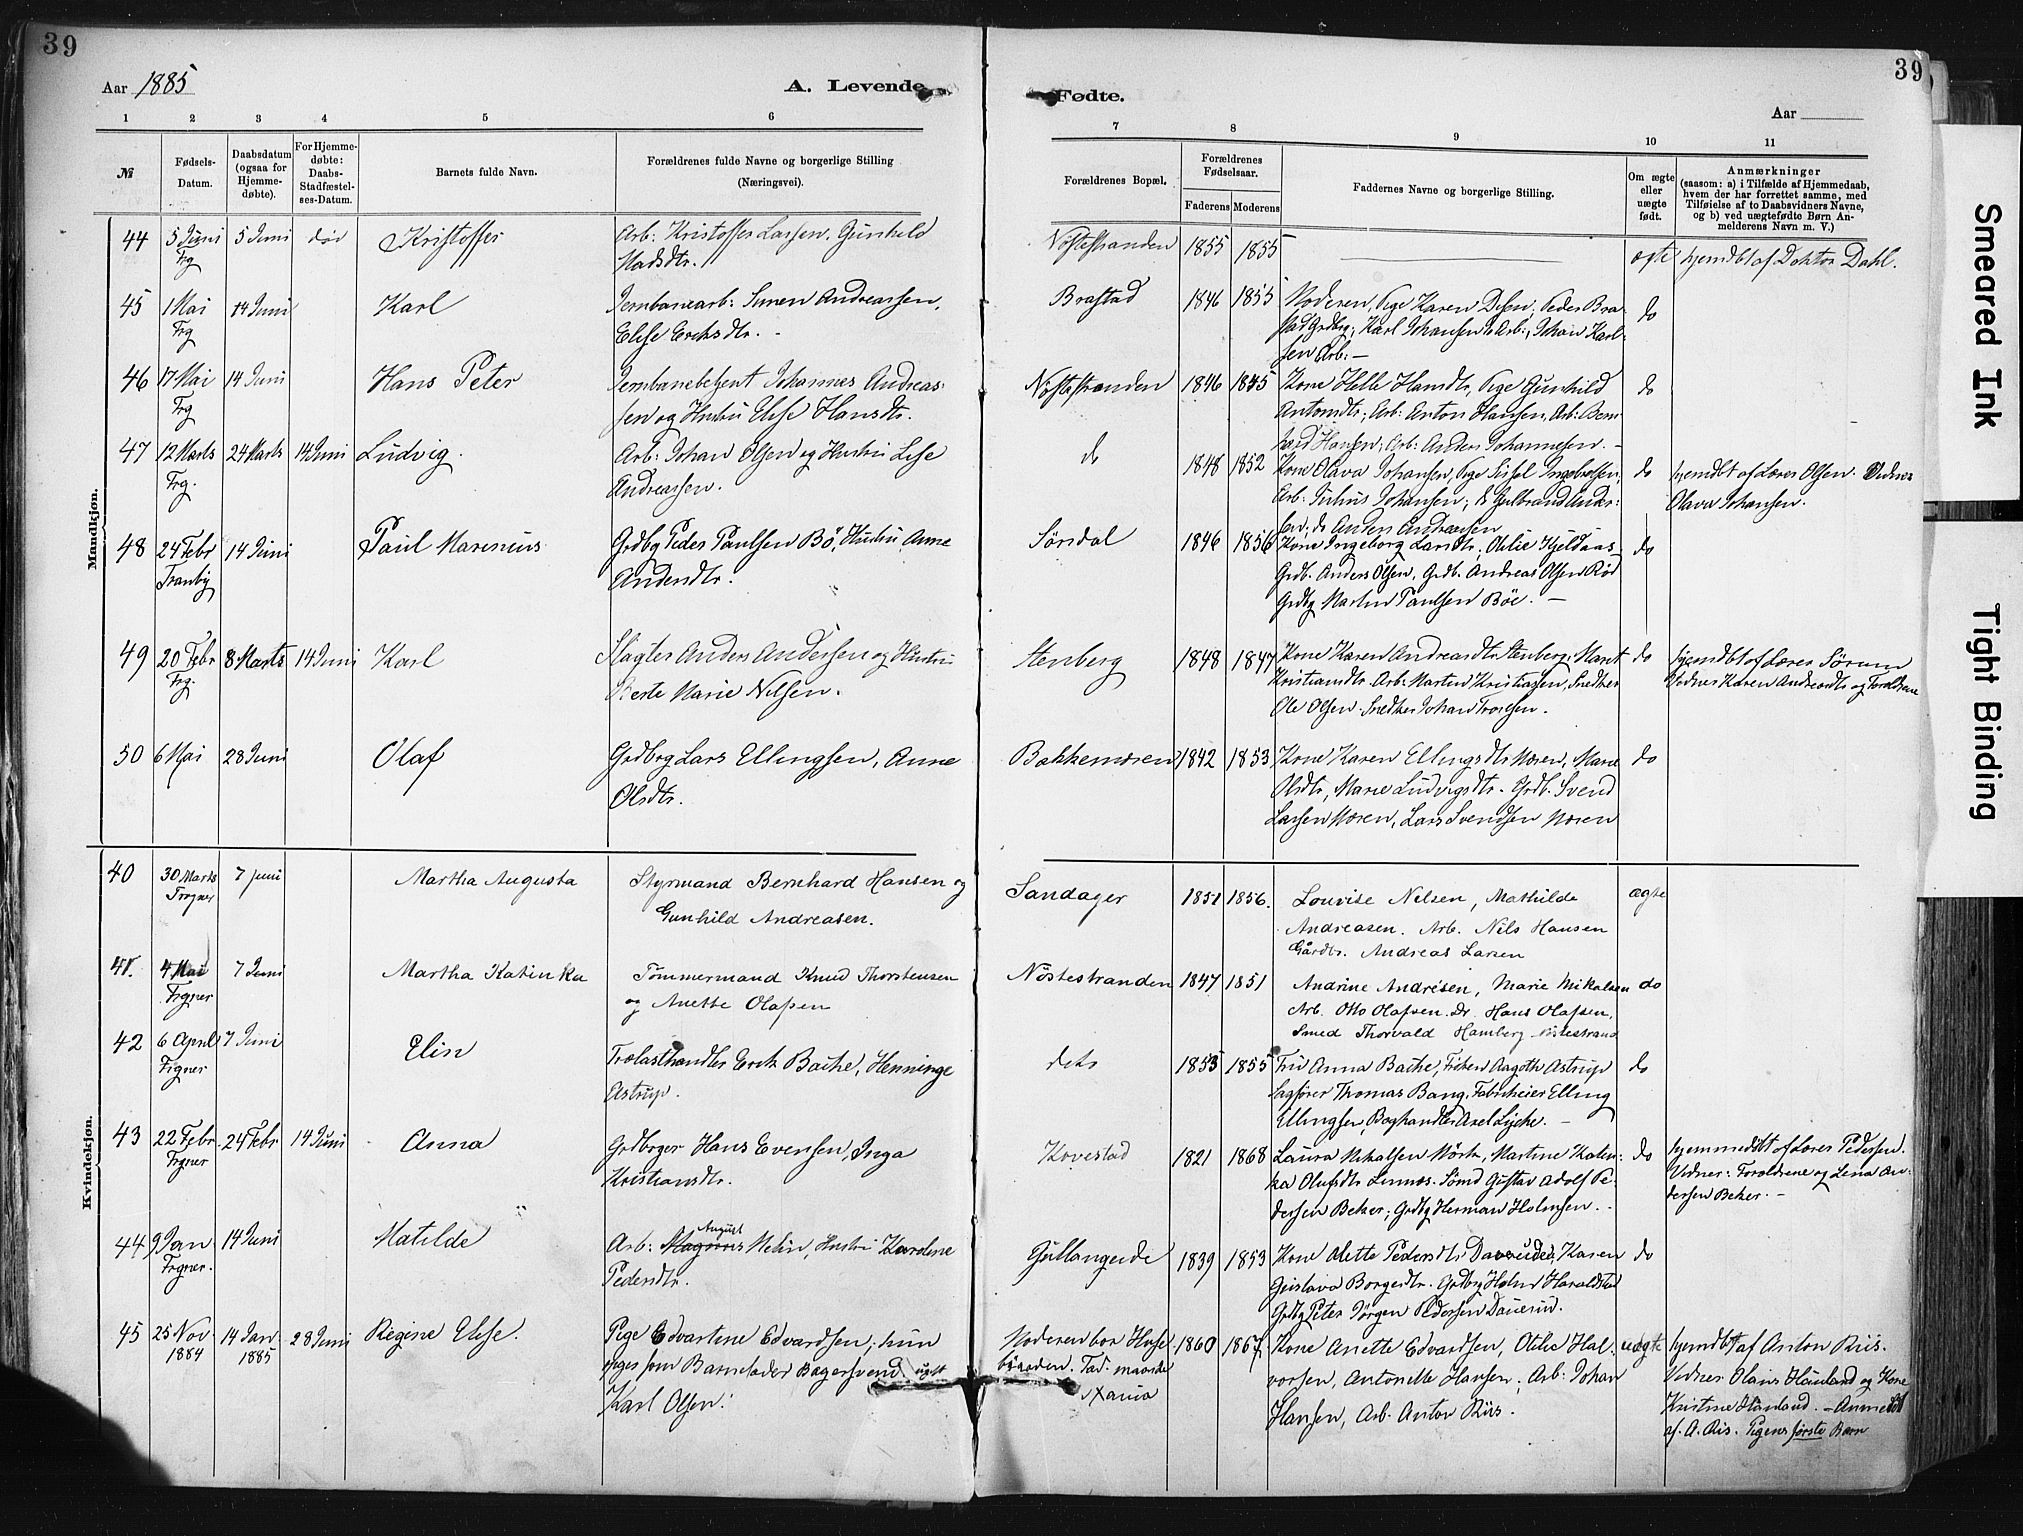 39
Aar 1885
A. Levende
1 2 3 4 5 6
№
Fødsels-Datum.
Daabsdatum (ogsaa for Hjemme-døbte).
For Hjemme-døbte: Daabs-Stadfæstel-ses-Datum.
Barnets fulde Navn.
Forældrenes fulde Navne og borgerlige Stilling
(Næringsvei).
Mandkjøn.
44 5 Juni 5 Juni død Kristoffer Arb: Kristoffer Larsen, Gunhild
Frg Madsdtr.
45 1 Mai 14 Juni Karl Jernbanearb: Simen Andreassen,
Frg Elise Eriksdtr. -
46 17 Mai 14 Juni Hans Peter Jernbanebetjent Johannes Andreas-
Frg sen og Hustru Elise Hansdtr.
47 12 Marts 24 Marts 14 Juni Ludvig. Arb: Johan Olsen og Hustru Lise
Frg. Andreassen.
48 24 Febr 14 Juni Paul Marenius Grdbg Peder Paulsen Bö, Hustru Anne
Tranby Andersdtr.
49 20 Febr 8 Marts 14 Juni Karl Slagter Anders Andersen og Hustru
Frg. Berte Marie Nilsen.
50 6 Mai 28 Juni Olaf Grdbrg Lars Ellingsen, Anne
Olsdtr.
Kvindekjøn.
40 30 Marts 7 juni Martha Augusta Styrmand Bernhard Hansen og
Frogner Gunhild Andreasen.
41. 4 Mai 7 Juni Martha Katinka Tömmermand Knud Thorstensen
Frgner og Anette Olafsen
42 6 April 7 Juni Elin Trælasthandler Erik Bache, Henninge
Frgner Astrup.
43 22 Febr 24 Febr 14 Juni Anna Grdbrger Hans Evensen, Inga
Frgner Kristiansdtr.
44 9 Jan 14 Juni Matilde Arb: Magnus August Melin, Hustru Karoline
Frgner. Pedersdtr.
45 25 Nov 14 Jan 28 Juni Regine Elise. Pige Edvartine Edvardsen, hun
1884 1885 opges som Barnefader Bagersvend ugft
Karl Olsen.
39
Fødte.
Aar
7 8 9 10 11
Forældrenes Bopæl.
Forældrenes Fødselsaar.
Faderens Moderens
Faddernes Navne og borgerlige Stilling.
Om ægte eller uægte født.
Anmærkninger
(saasom: a) i Tilfælde af Hjemmedaab,
hvem der har forrettet samme, med
Tilføielse af to Daabsvidners Navne,
og b) ved uægtefødte Børn An-
melderens Navn m. V.)
Nøstestranden 1855 1855 ægte hjemdbt af Doktor Dahl.
Brastad 1846 1855 Moderen, Pige Karen Olsen, Peder Bra-
stad Grdbg, Karl Johansen Arb:, Johan Karl-
sen Arb: - do
Nøstestranden 1846 1845 Kone Helle Hansdtr, Pige Gunhild
Antondtr, Arb: Anton Hansen, Arb: Bern-
hard Hansen, Arb: Anders Johannesen. - do
do 1848 1852 Kone Olava Johansen, Pige Sissel Ingebretsen,
Arb: Julius Johansen, do Gulbrand Ander-
sen, do Anders Andreasen do hjemdbt af Lærer Olsen. Vidner
Olava Johansen.
Sörsdal 1846 1856 Kone Ingeborg Larsdtr, Otilie Kjeldaas
Grdb. Anders Olsen, Grdb. Andreas Olsen Röd
Grdbg Martin Paulsen Böe. - do
Stenberg 1848 1847 Kone Karen Andreasdtr Stenberg, Maret
Kristiansdtr. Arb: Martin Kristiansen, Snedker
Ole Olsen. Snedker Johan Ivarsen. do hjemdbt af Lærer Sörum
Vidner Karen Andreasdtr og Forældrene
Bakkemoren 1842 1853 Kone Karen Ellingsdtr Moren, Marie
Olsdtr, Marie Ludvigsdtr. Grdb. Svend
Larsen Moren, Lars Svendsen Moren do
Sandager 1851 1856. Louvise Nelsen, Mathilde
Andreasen. Arb. Nils Hansen
Gårdbr. Andreas Larsen ægte
Nöstestranden 1847 1851 Andrine Andrésen, Marie Mikalsen
Arb. Otto Olafsen. Do. Hans Olafsen,
Smed Thorvald Hamberg Nöstestrand do
dets 1853 1855 Fru Anna Bache, Fröken Aagoth Astrup
Sagförer Thomas Bang, Fabrikeier Elling
Ellingsen, Boghandler Axel Lyche. - do
Kovestad 1821 1868 Laura Mikalsen Mörk, Martine Katin-
ka Olufsdtr Linnes. Sömd Gustav Adolf Pe-
dersen Beker; Grdbg Herman Holmsen. do hjemmedöbt af Lærer Pedersen.
Vidner: Forældrene og Lena An-
dersen Beker. -
Gullaugeide 1839 1853 Kone Olette Pedersdtr Daverud, Karen
Gustava Borgersdtr. Grdbg Holm Haraldstad
Grdbg Peter Jörgen Pedersen Daverud. do
Moderen bor Huse-
byjorden. Fad: maaske
Xania 1860 1867 Kone Anette Edvardsen, Otilie Hal-
vorsen, Antonette Hansen; Arb: Johan
Hansen, Arb. Anton Riis. uægte hjemdbt af Anton Riis.
Vidner Olaus Hönland og Kone
Kristine Hönland. - Anmeldt
af. A. Riis. Pigens første Barn
Smeared Ink
Tight Binding